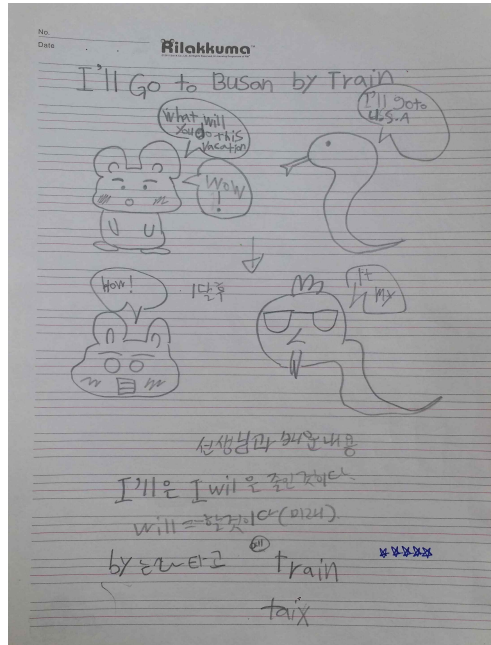 No.
Date
Rilakkuma™
I'll Go to Busan by Train
What will
you do this
vacation
I'll goto
U.S.A
WoW
!
How!
1달후
It
my
선생님과 배운내용
I'll은 I wil 을 줄인것이다.
will = ~할것이다(미래).
by는 ~타고
train
taix